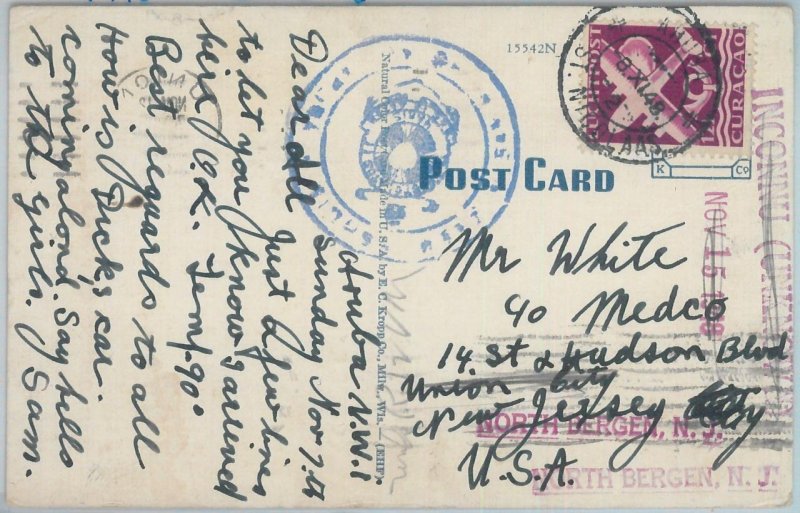 Aruba N.W.I
Sunday Nov 7th
Dear All
Just a few lines
to let you know I arrived
here O.K. Temp. 90°
Best regards to all
How is Dick's car.
coming along. Say hello
to the girls. Sam.
15542N
POST CARD
Made in U.S.A. by E. C. Kropp Co., Milw., Wis.
K Co
LUCHTPOST
CURAÇAO
ARUBA
ST. NICOLAAS
INCONNU
NOV 15 19
Mr White
c/o Medco
14. St & Hudson Blvd
Union City
New Jersey
NORTH BERGEN, N. J.
U.S.A.
NORTH BERGEN, N. J.